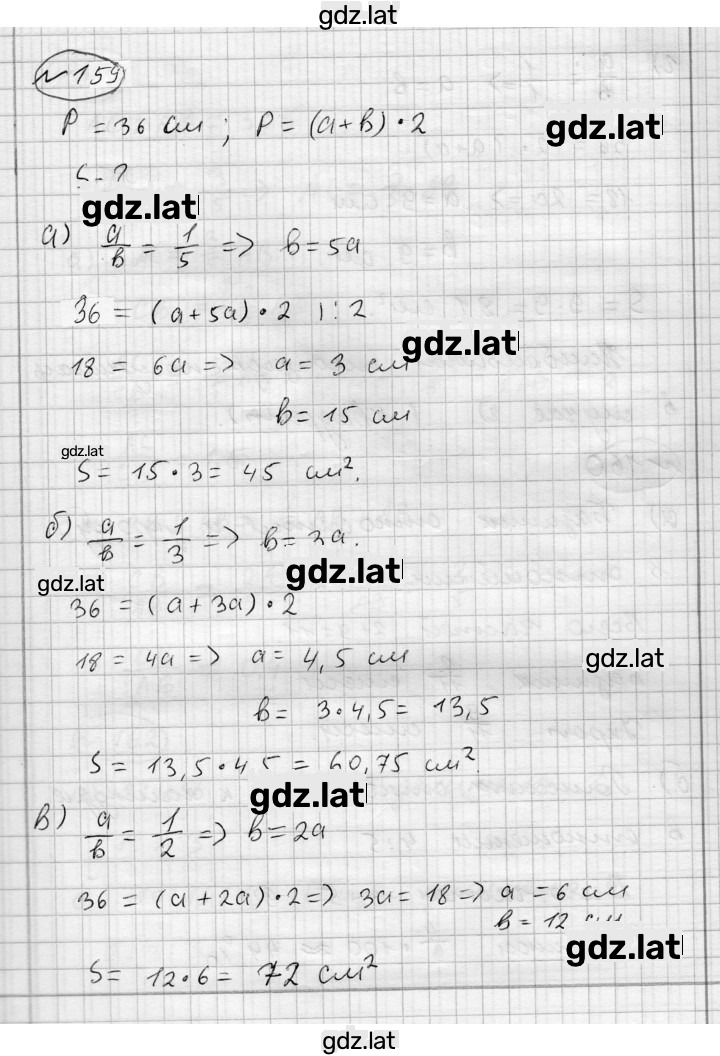 gdz.lat
№159
P = 36 см ; P = (a+b) • 2
gdz.lat
S - ?
gdz.lat
а) a/b = 1/5 => b = 5a
36 = (a + 5a) • 2 | : 2
gdz.lat
18 = 6a => a = 3 см
b = 15 см
gdz.lat
S = 15 • 3 = 45 см².
б) a/b = 1/3 => b = 3a.
gdz.lat
gdz.lat
36 = (a + 3a) • 2
18 = 4a => a = 4,5 см
gdz.lat
b = 3 • 4,5 = 13,5
S = 13,5 • 4,5 = 60,75 см².
gdz.lat
в) a/b = 1/2 => b = 2a
36 = (a + 2a) • 2 => 3a = 18 => a = 6 см
b = 12 см
gdz.lat
S = 12 • 6 = 72 см²
gdz.lat